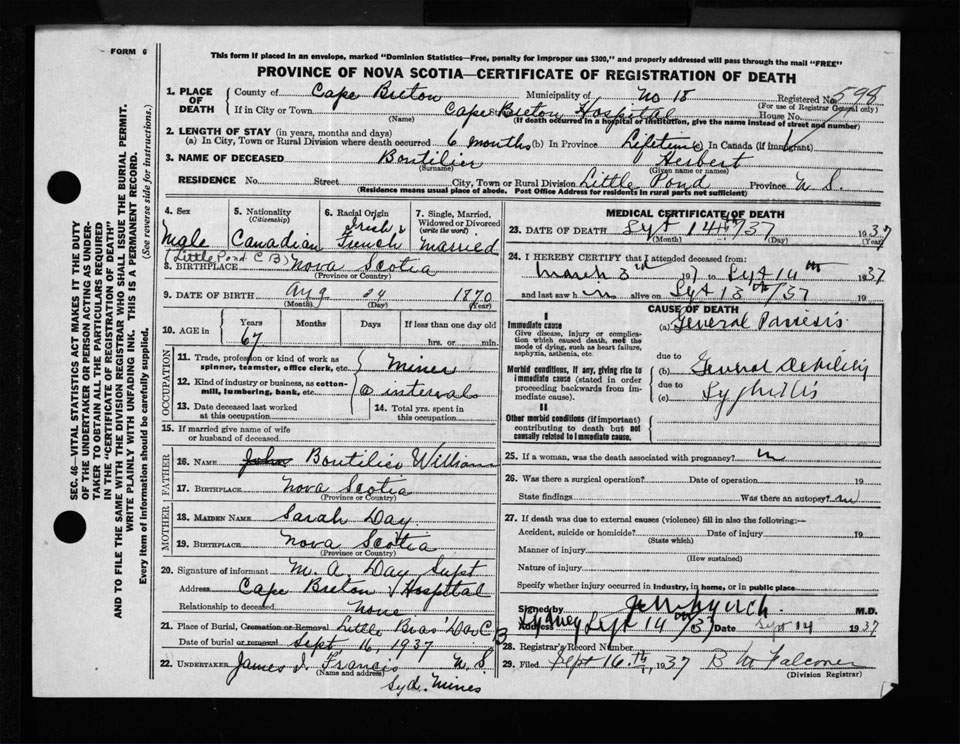 FORM 6
This form if placed in an envelope, marked "Dominion Statistics—Free, penalty for improper use $300," and properly addressed will pass through the mail "FREE"
PROVINCE OF NOVA SCOTIA—CERTIFICATE OF REGISTRATION OF DEATH
1. PLACE OF DEATH
County of Cape Breton Municipality of No 18 Registered No. 598
(For use of Registrar General only)
If in City or Town St. Cape Breton Hospital House No.
(Name) (If death occurred in a hospital or institution, give the name instead of street and number)
2. LENGTH OF STAY (in years, months and days)
(a) In City, Town or Rural Division where death occurred 6 months (b) In Province Lifetime (c) In Canada (if immigrant)
3. NAME OF DECEASED Boutilier Herbert
(Surname) (Given name or names)
RESIDENCE No. Street City, Town or Rural Division Little Pond Province N S.
(Residence means usual place of abode. Post Office Address for residents in rural parts not sufficient)
4. Sex Male
5. Nationality (Citizenship) Canadian
6. Racial Origin Irish & French
7. Single, Married, Widowed or Divorced (write the word) Married
(Little Pond C B)
8. BIRTHPLACE Nova Scotia
(Province or Country)
9. DATE OF BIRTH Aug 24 1870
(Month) (Day) (Year)
10. AGE in Years Months Days If less than one day old
67 hrs. or min.
OCCUPATION
11. Trade, profession or kind of work as spinner, teamster, office clerk, etc. Miner
12. Kind of industry or business, as cotton-mill, lumbering, bank, etc. @ intervals
13. Date deceased last worked at this occupation
14. Total yrs. spent in this occupation
15. If married give name of wife or husband of deceased
FATHER
16. NAME John Boutilier William
17. BIRTHPLACE Nova Scotia
(Province or Country)
MOTHER
18. MAIDEN NAME Sarah Day
19. BIRTHPLACE Nova Scotia
(Province or Country)
20. Signature of informant M. A. Day Supt
Address Cape Breton Hospital
Relationship to deceased None
21. Place of Burial, Cremation or Removal Little Bras' Dor C B
Date of burial or removal Sept 16, 1937
22. UNDERTAKER James Francis N. S.
(Name and address)
Syd. Mines
MEDICAL CERTIFICATE OF DEATH
23. DATE OF DEATH Sept 14th/37 1937
(Month) (Day) (Year)
24. I HEREBY CERTIFY that I attended deceased from:
March 3rd 193 to Sept 14th 1937
and last saw him alive on Sept 13th/37 19
CAUSE OF DEATH
I
Immediate cause
Give disease, injury or complication which caused death, not the mode of dying, such as heart failure, asphyxia, asthenia, etc.
(a) General Paresis
due to
Morbid conditions, if any, giving rise to immediate cause (stated in order proceeding backwards from immediate cause).
(b) General Debility
due to
(c) Syphillis
II
Other morbid conditions (if important) contributing to death but not causally related to immediate cause.
25. If a woman, was the death associated with pregnancy?
26. Was there a surgical operation? Date of operation 19
State findings Was there an autopsy? no
27. If death was due to external causes (violence) fill in also the following:—
Accident, suicide or homicide? Date of injury 19
(State which)
Manner of injury
(How sustained)
Nature of injury
Specify whether injury occurred in industry, in home, or in public place
Signed by M.D.
Address Sydney Sept 14th/37 Date Sept 14 1937
28. Registrar's Record Number
29. Filed Sept 16th, 1937 B M Falconer
(Division Registrar)
SEC. 46—VITAL STATISTICS ACT MAKES IT THE DUTY
OF THE UNDERTAKER OR PERSON ACTING AS UNDER-
TAKER TO OBTAIN ALL THE PARTICULARS REQUIRED
IN THE "CERTIFICATE OF REGISTRATION OF DEATH"
AND TO FILE THE SAME WITH THE DIVISION REGISTRAR WHO SHALL ISSUE THE BURIAL PERMIT.
WRITE PLAINLY WITH UNFADING INK. THIS IS A PERMANENT RECORD.
Every item of information should be carefully supplied. (See reverse side for instructions.)